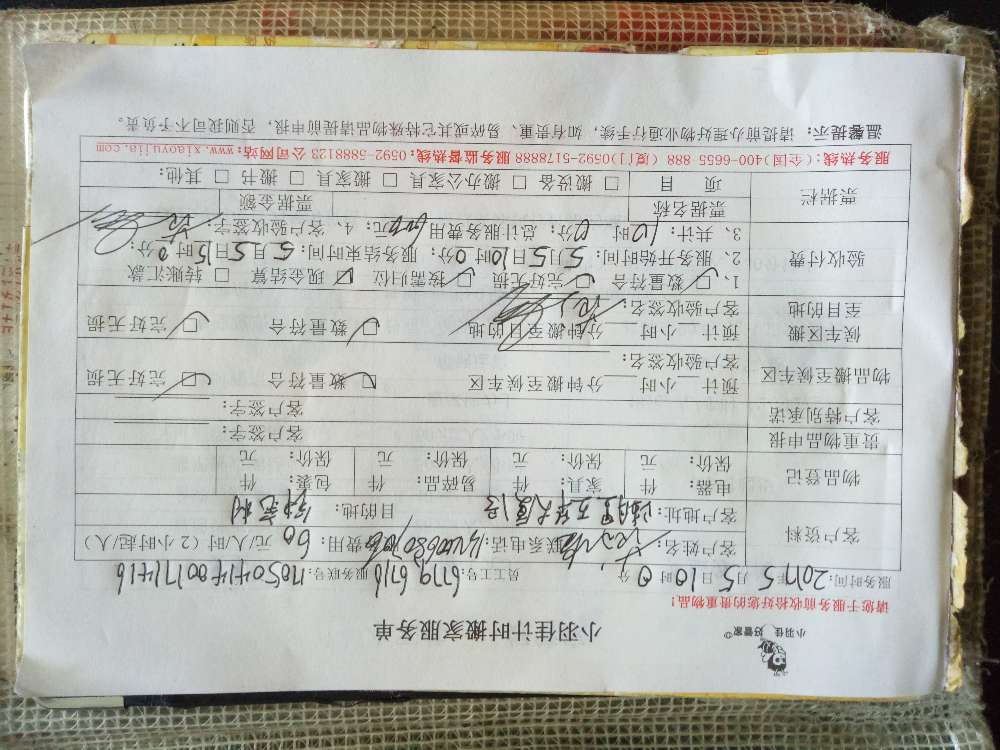 小羽佳 好管家
小羽佳计时搬家服务单
请您于服务前收拾好您的贵重物品！
服务时间：2017年5月5日10时0分 员工工号：6779 6716 服务联号：170504141400171416
客户资料 客户姓名： 联系电话： 费用：60元/人/时（2小时/起/人）
客户地址： 目的地：
物品登记 电器： 件 家具： 件 易碎品： 件 包装： 件
保价： 元 保价： 元 保价： 元 保价： 元
贵重物品申报 客户签字：
客户特别承诺 客户签字：
物品搬至候车区 预计 小时 分钟搬至候车区 数量符合 完好无损
客户验收签名：
候车区搬至目的地 预计 小时 分钟搬至目的地 数量符合 完好无损
客户验收签名：
验收付费 1、数量符合 完好无损 按需归位 现金结算 转账汇款
2、服务开始时间：5月5日10时0分； 服务结束时间：5月5日15时0分；
3、共计：10时0分； 总计服务费用600元； 4、客户验收签字：
票据栏 票据名称 票据金额
项 目 搬设备 搬办公家具 搬家具 搬书 其他：
服务热线：(全国)400-6655-888 (厦门)0592-5178888 服务监督热线：0592-5888123 公司网站：www.xiaoyujia.com
温馨提示：请提前办理好物业通行手续，如有贵重、易碎或其它特殊物品请提前申报，否则我司不予负责。